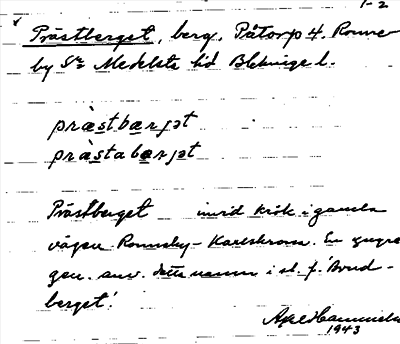 1-2
Prästberget, berg, Påtorp 4. Ronne-
by Sn Medelsta hd Blekinge l.
præ̀stbærjət
præ̀stabærjət
Prästberget invid krök i gamla
vägen Ronneby-Karlskrona. En yngre
gen. anv. detta namn i st. f. 'Brud-
berget'.
Axel
1943